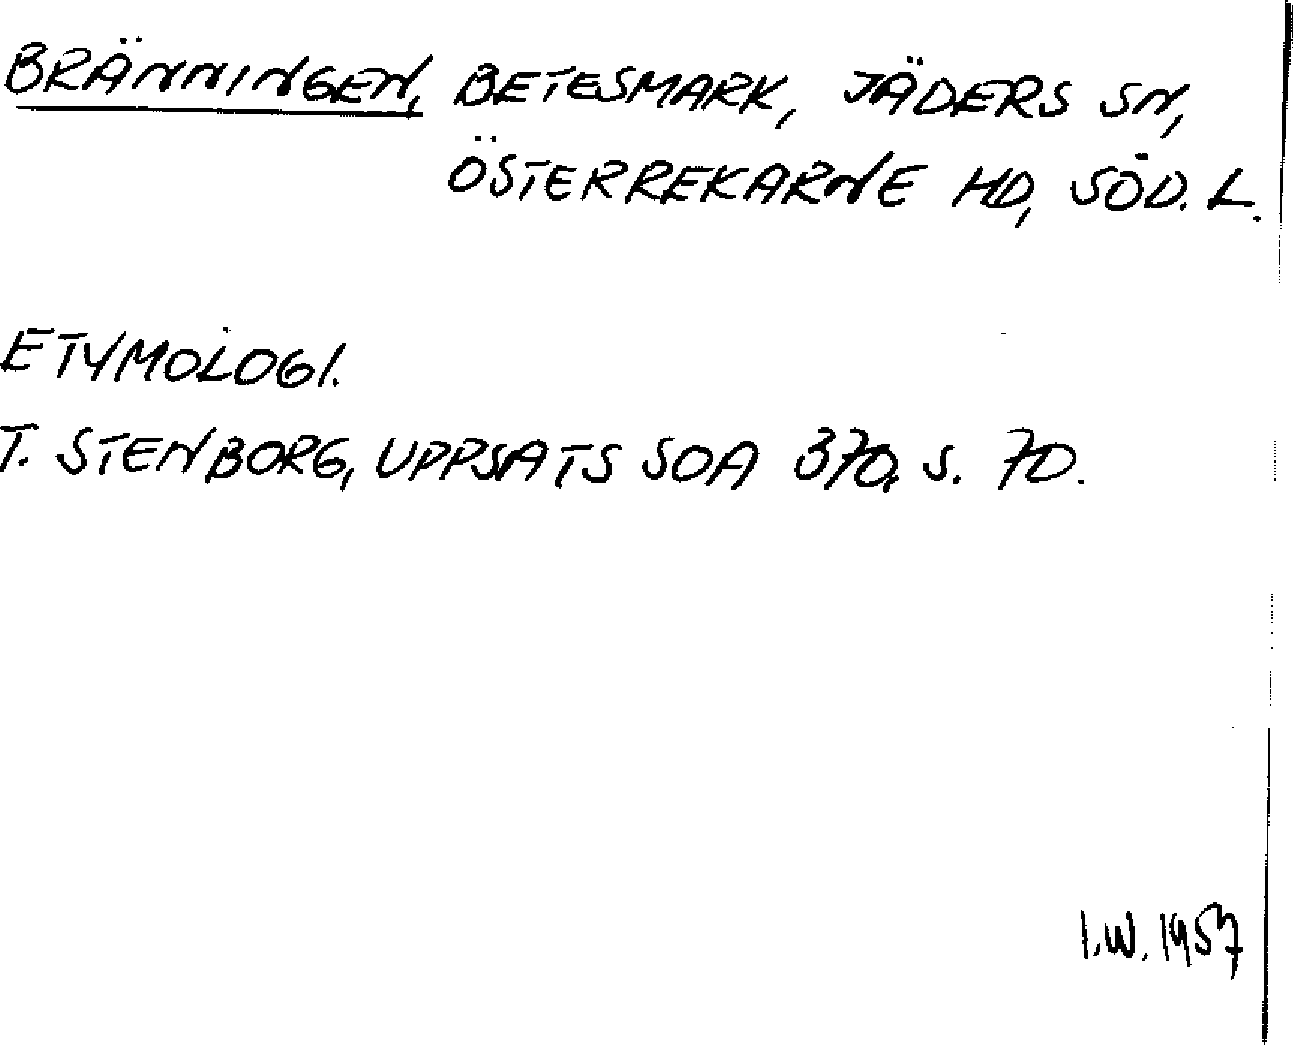 BRÄNNINGEN, BETESMARK, JÄDERS SN,
ÖSTERREKARNE HD, SÖD. L.
ETYMOLOGI.
T. STENBORG, UPPSATS SOA 370, S. 70.
I.W. 1957